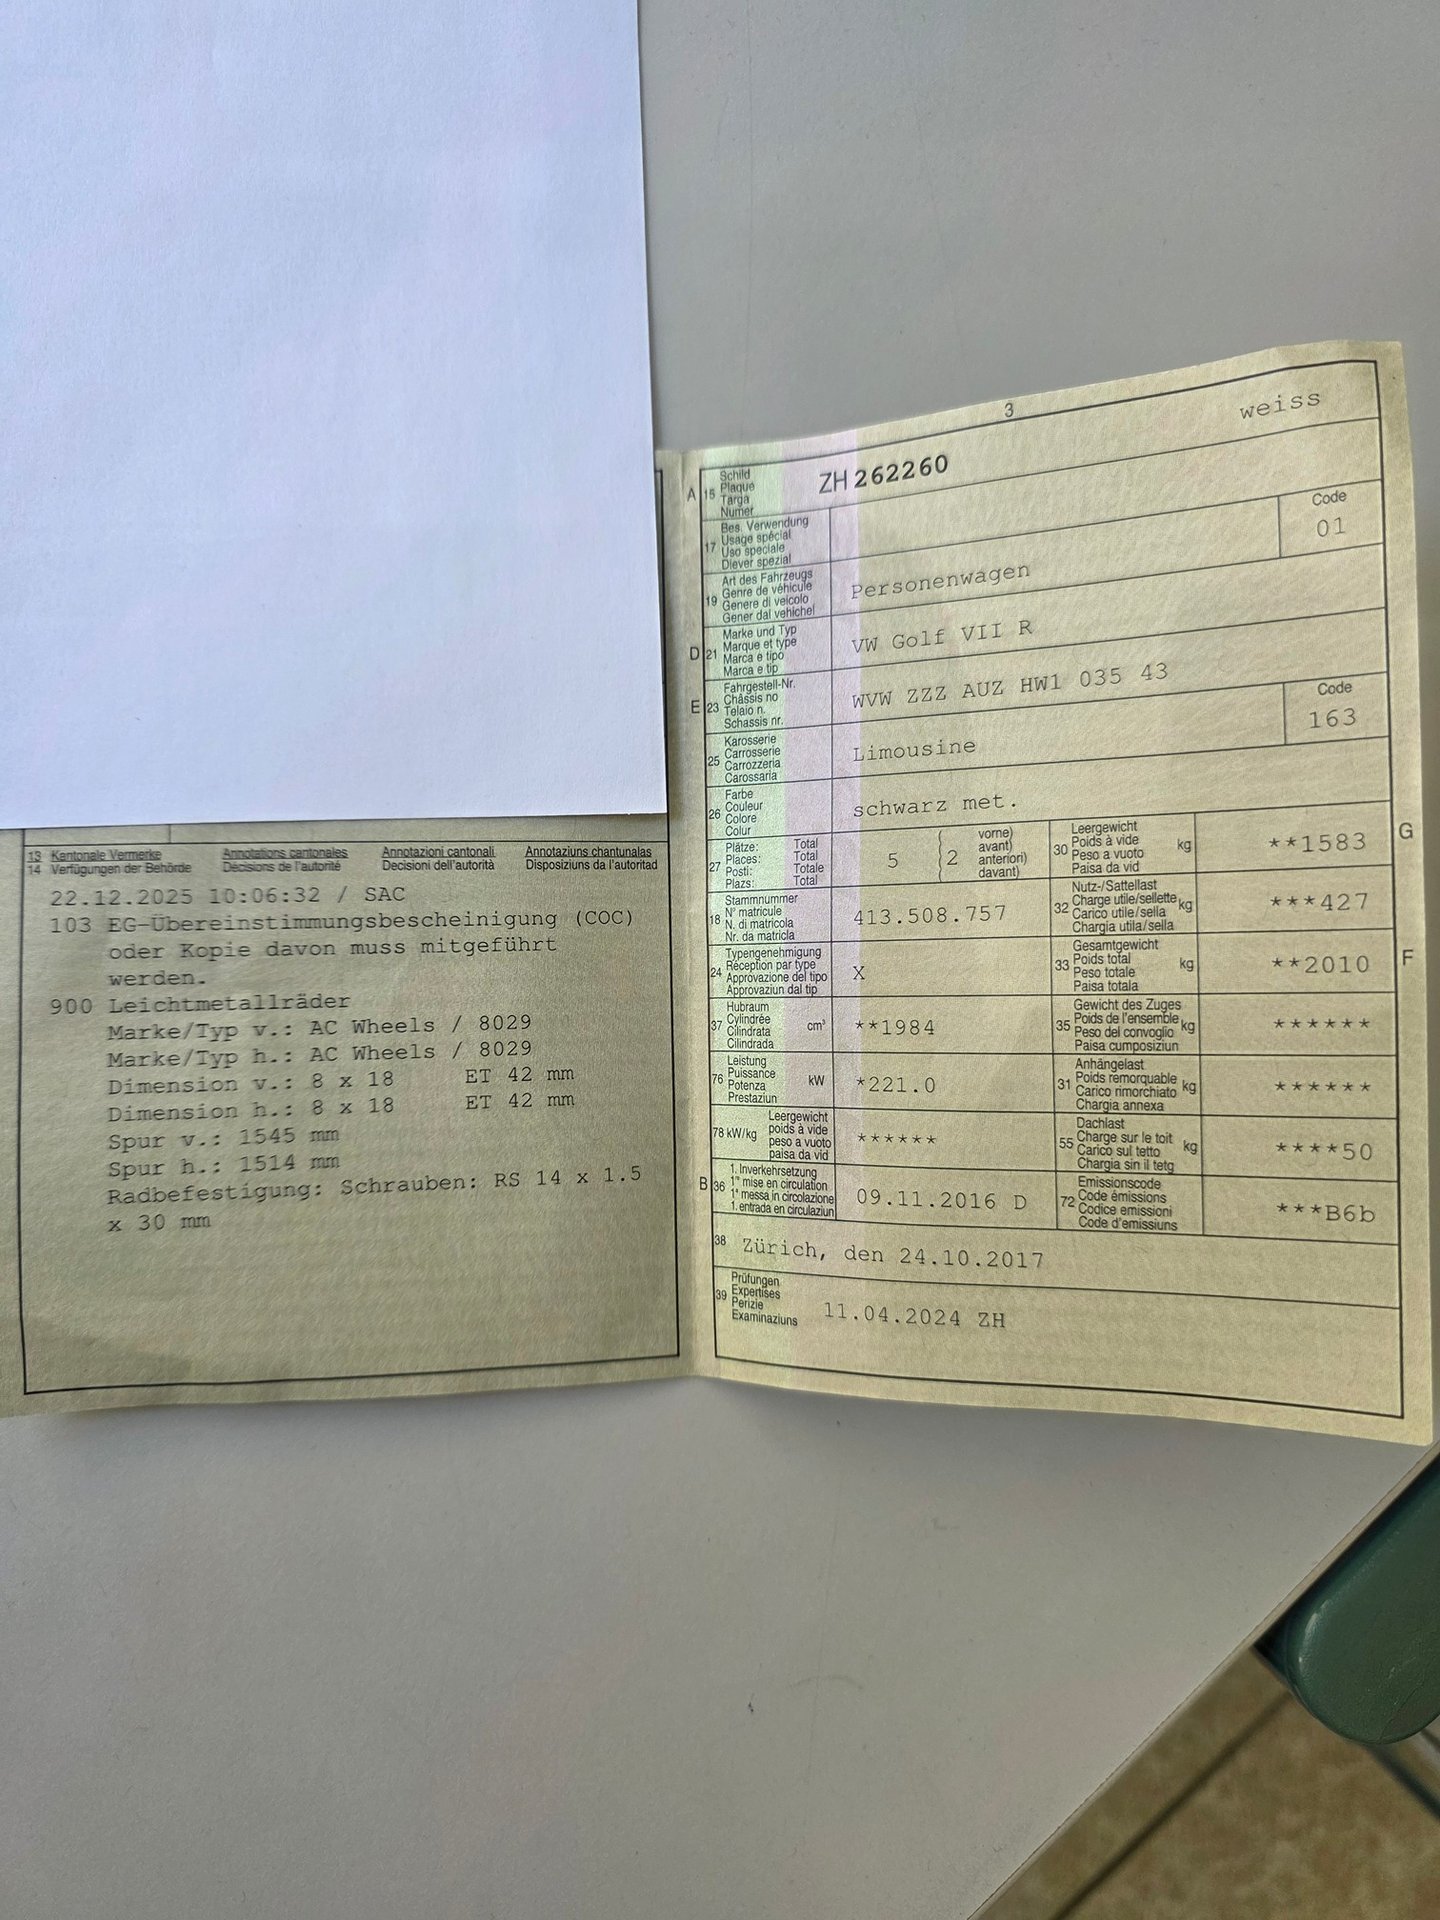 13 Kantonale Vermerke Annotations cantonales Annotazioni cantonali Annotaziuns chantunalas
14 Verfügungen der Behörde Décisions de l'autorité Decisioni dell'autorità Disposiziuns da l'autoritad
22.12.2025 10:06:32 / SAC
103 EG-Übereinstimmungsbescheinigung (COC)
oder Kopie davon muss mitgeführt
werden.
900 Leichtmetallräder
Marke/Typ v.: AC Wheels / 8029
Marke/Typ h.: AC Wheels / 8029
Dimension v.: 8 x 18 ET 42 mm
Dimension h.: 8 x 18 ET 42 mm
Spur v.: 1545 mm
Spur h.: 1514 mm
Radbefestigung: Schrauben: RS 14 x 1.5
x 30 mm
3
weiss
A 15 Schild
Plaque
Targa
Numer
ZH 262260
17 Bes. Verwendung
Usage spécial
Uso speciale
Diever spezial
Code
01
19 Art des Fahrzeugs
Genre de véhicule
Genere di veicolo
Gener dal vehichel
Personenwagen
D 21 Marke und Typ
Marque et type
Marca e tipo
Marca e tip
VW Golf VII R
E 23 Fahrgestell-Nr.
Châssis no
Telaio n.
Schassis nr.
WVW ZZZ AUZ HW1 035 43
25 Karosserie
Carrosserie
Carrozzeria
Carossaria
Limousine
Code
163
26 Farbe
Couleur
Colore
Colur
schwarz met.
27 Plätze: Total
Places: Total
Posti: Totale
Plazs: Total
5 ( 2 vorne)
avant)
anteriori)
davant)
30 Leergewicht
Poids à vide
Peso a vuoto
Paisa da vid
kg
**1583
G
18 Stammnummer
N° matricule
N. di matricola
Nr. da matricla
413.508.757
32 Nutz-/Sattellast
Charge utile/sellette
Carico utile/sella
Chargia utila/sella
kg
***427
24 Typengenehmigung
Réception par type
Approvazione del tipo
Approvaziun dal tip
X
33 Gesamtgewicht
Poids total
Peso totale
Paisa totala
kg
**2010
F
37 Hubraum
Cylindrée
Cilindrata
Cilindrada
cm³
**1984
35 Gewicht des Zuges
Poids de l'ensemble
Peso del convoglio
Paisa cumposiziun
kg
******
76 Leistung
Puissance
Potenza
Prestaziun
kW
*221.0
31 Anhängelast
Poids remorquable
Carico rimorchiato
Chargia annexa
kg
******
78 kW/kg Leergewicht
poids à vide
peso a vuoto
paisa da vid
******
55 Dachlast
Charge sur le toit
Carico sul tetto
Chargia sin il tetg
kg
****50
B 36 1. Inverkehrsetzung
1re mise en circulation
1a messa in circolazione
1. entrada en circulaziun
09.11.2016 D
72 Emissionscode
Code émissions
Codice emissioni
Code d'emissiuns
***B6b
38 Zürich, den 24.10.2017
39 Prüfungen
Expertises
Perizie
Examinaziuns
11.04.2024 ZH